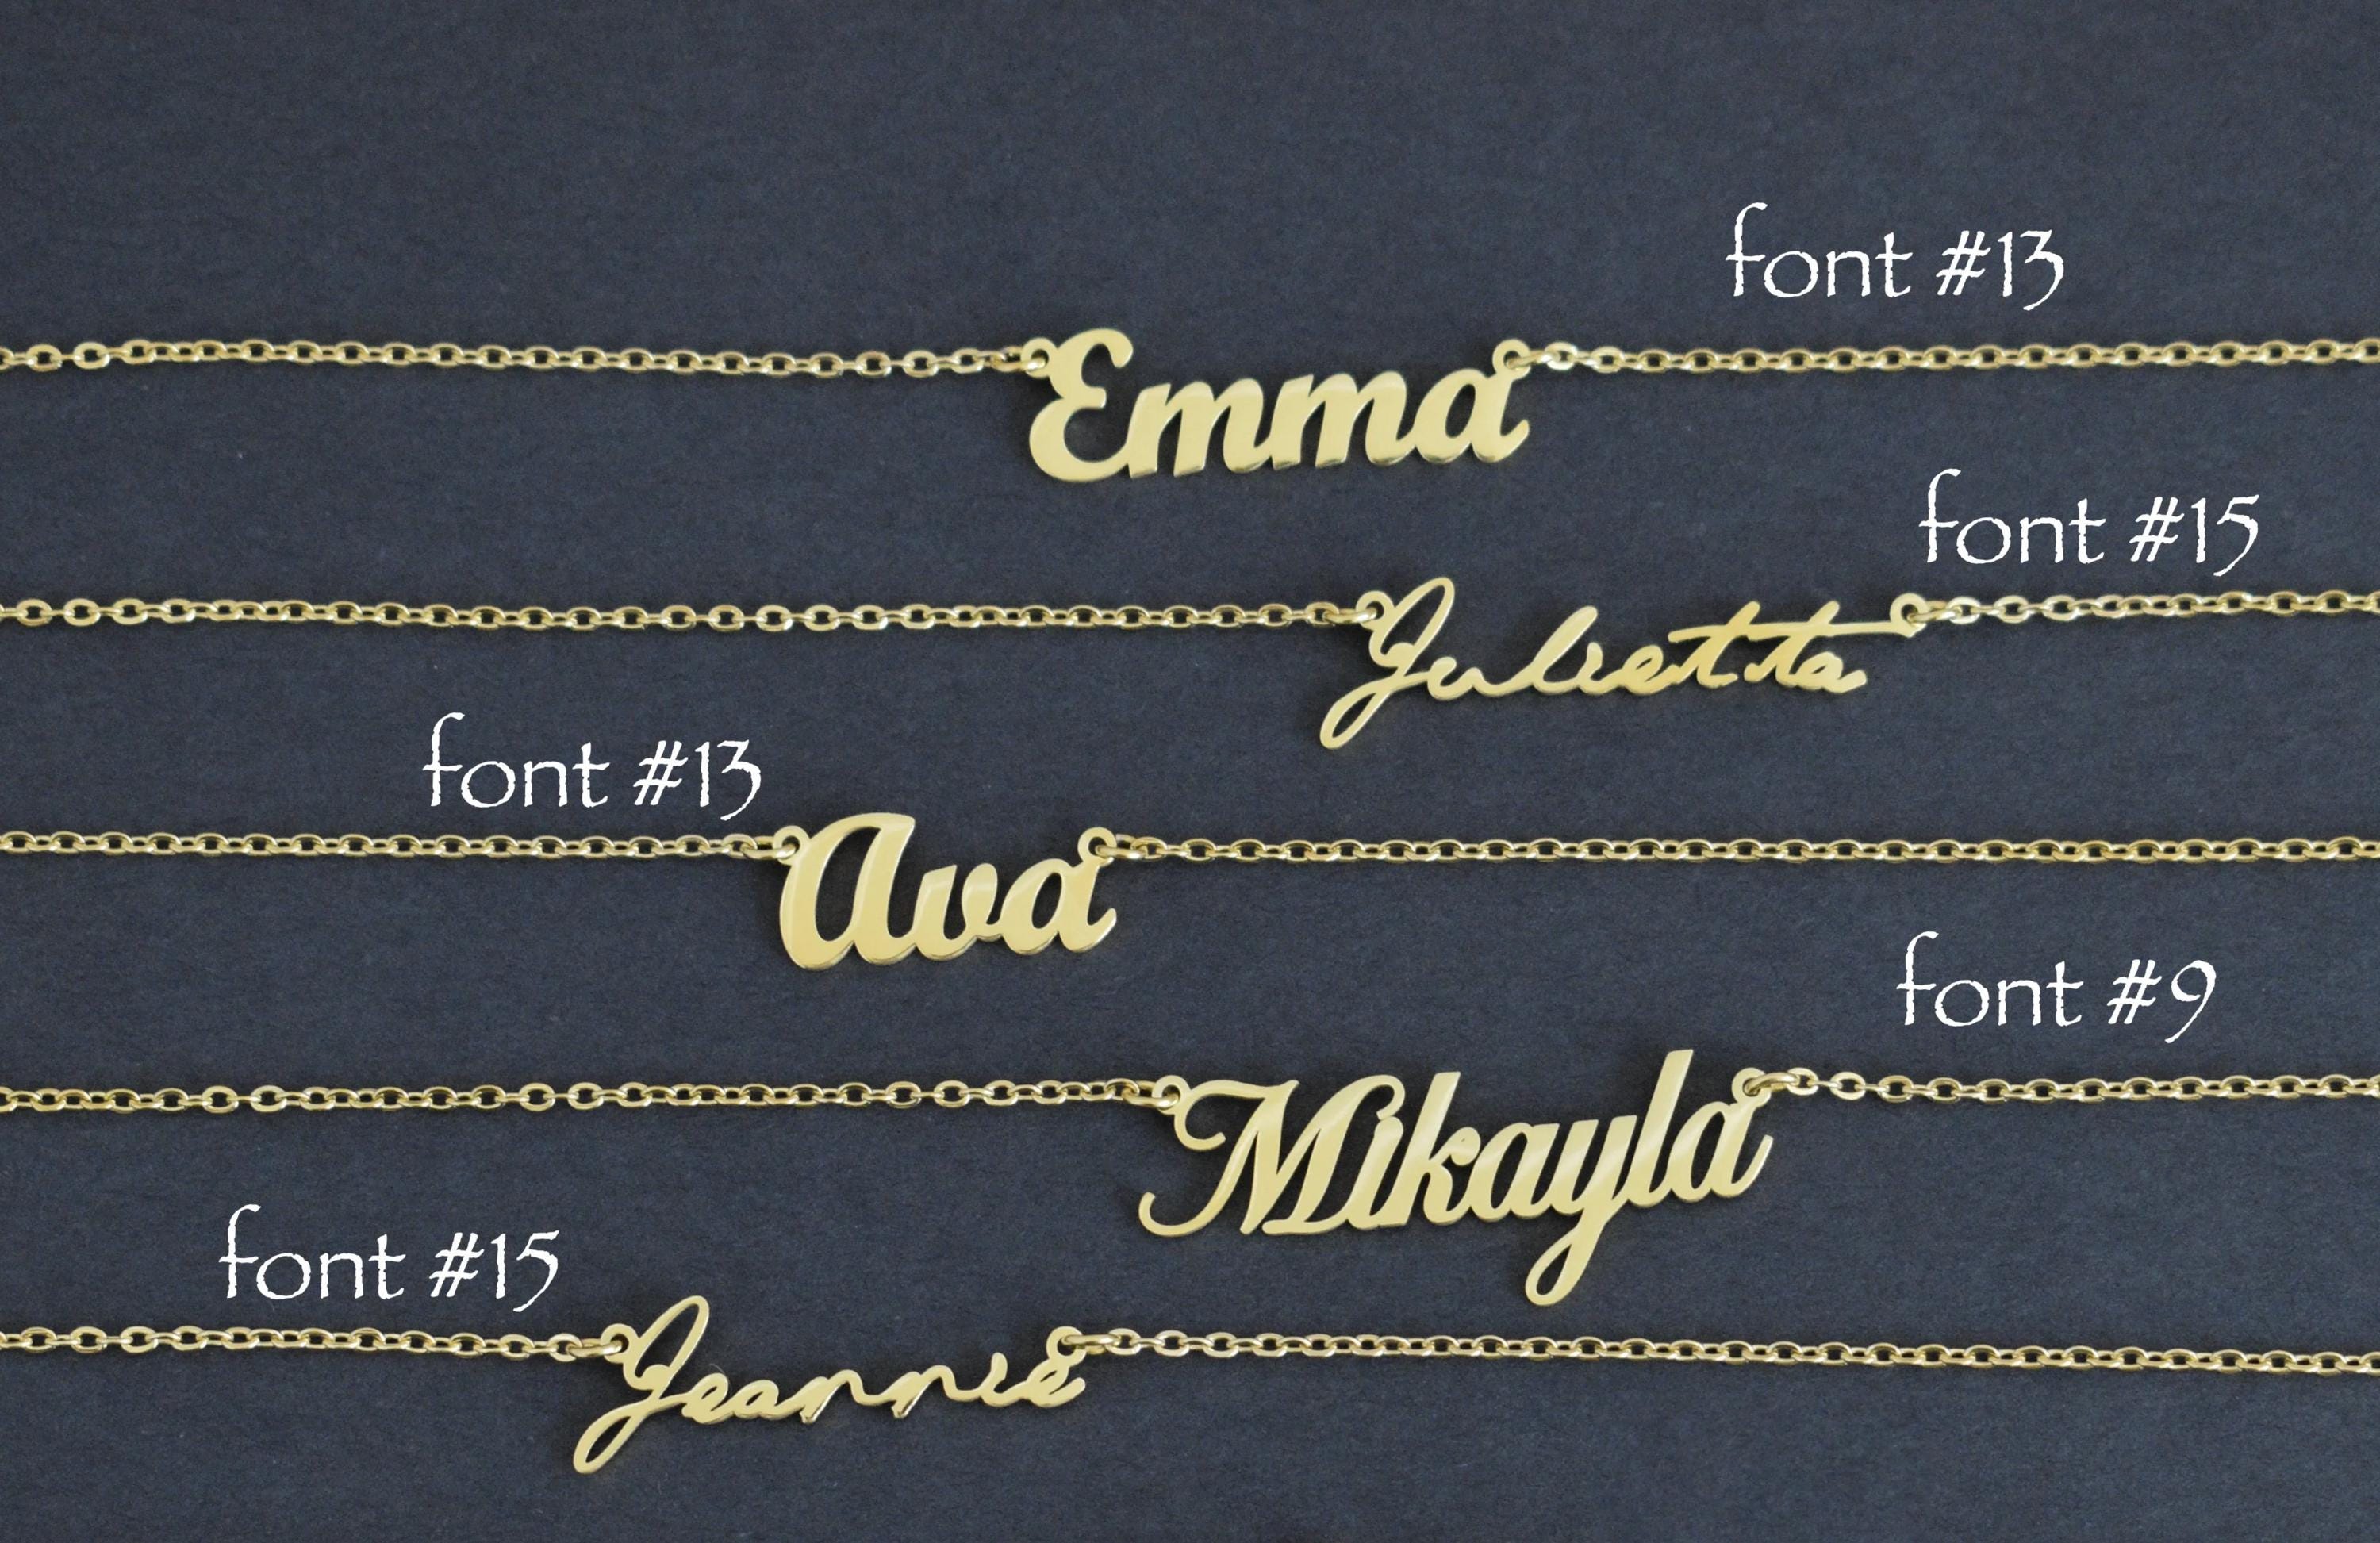 font #13
Emma
font #15
Julietta
font #13
Ava
font #9
Mikayla
font #15
Jeannie